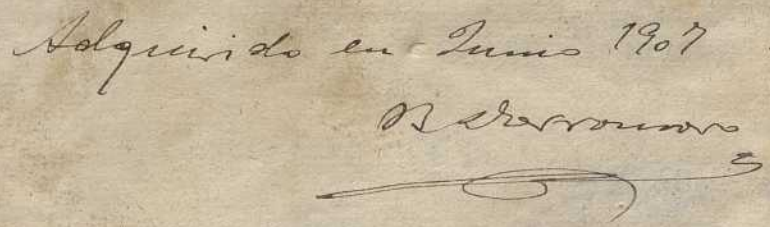 Adquirido en Junio 1907
B